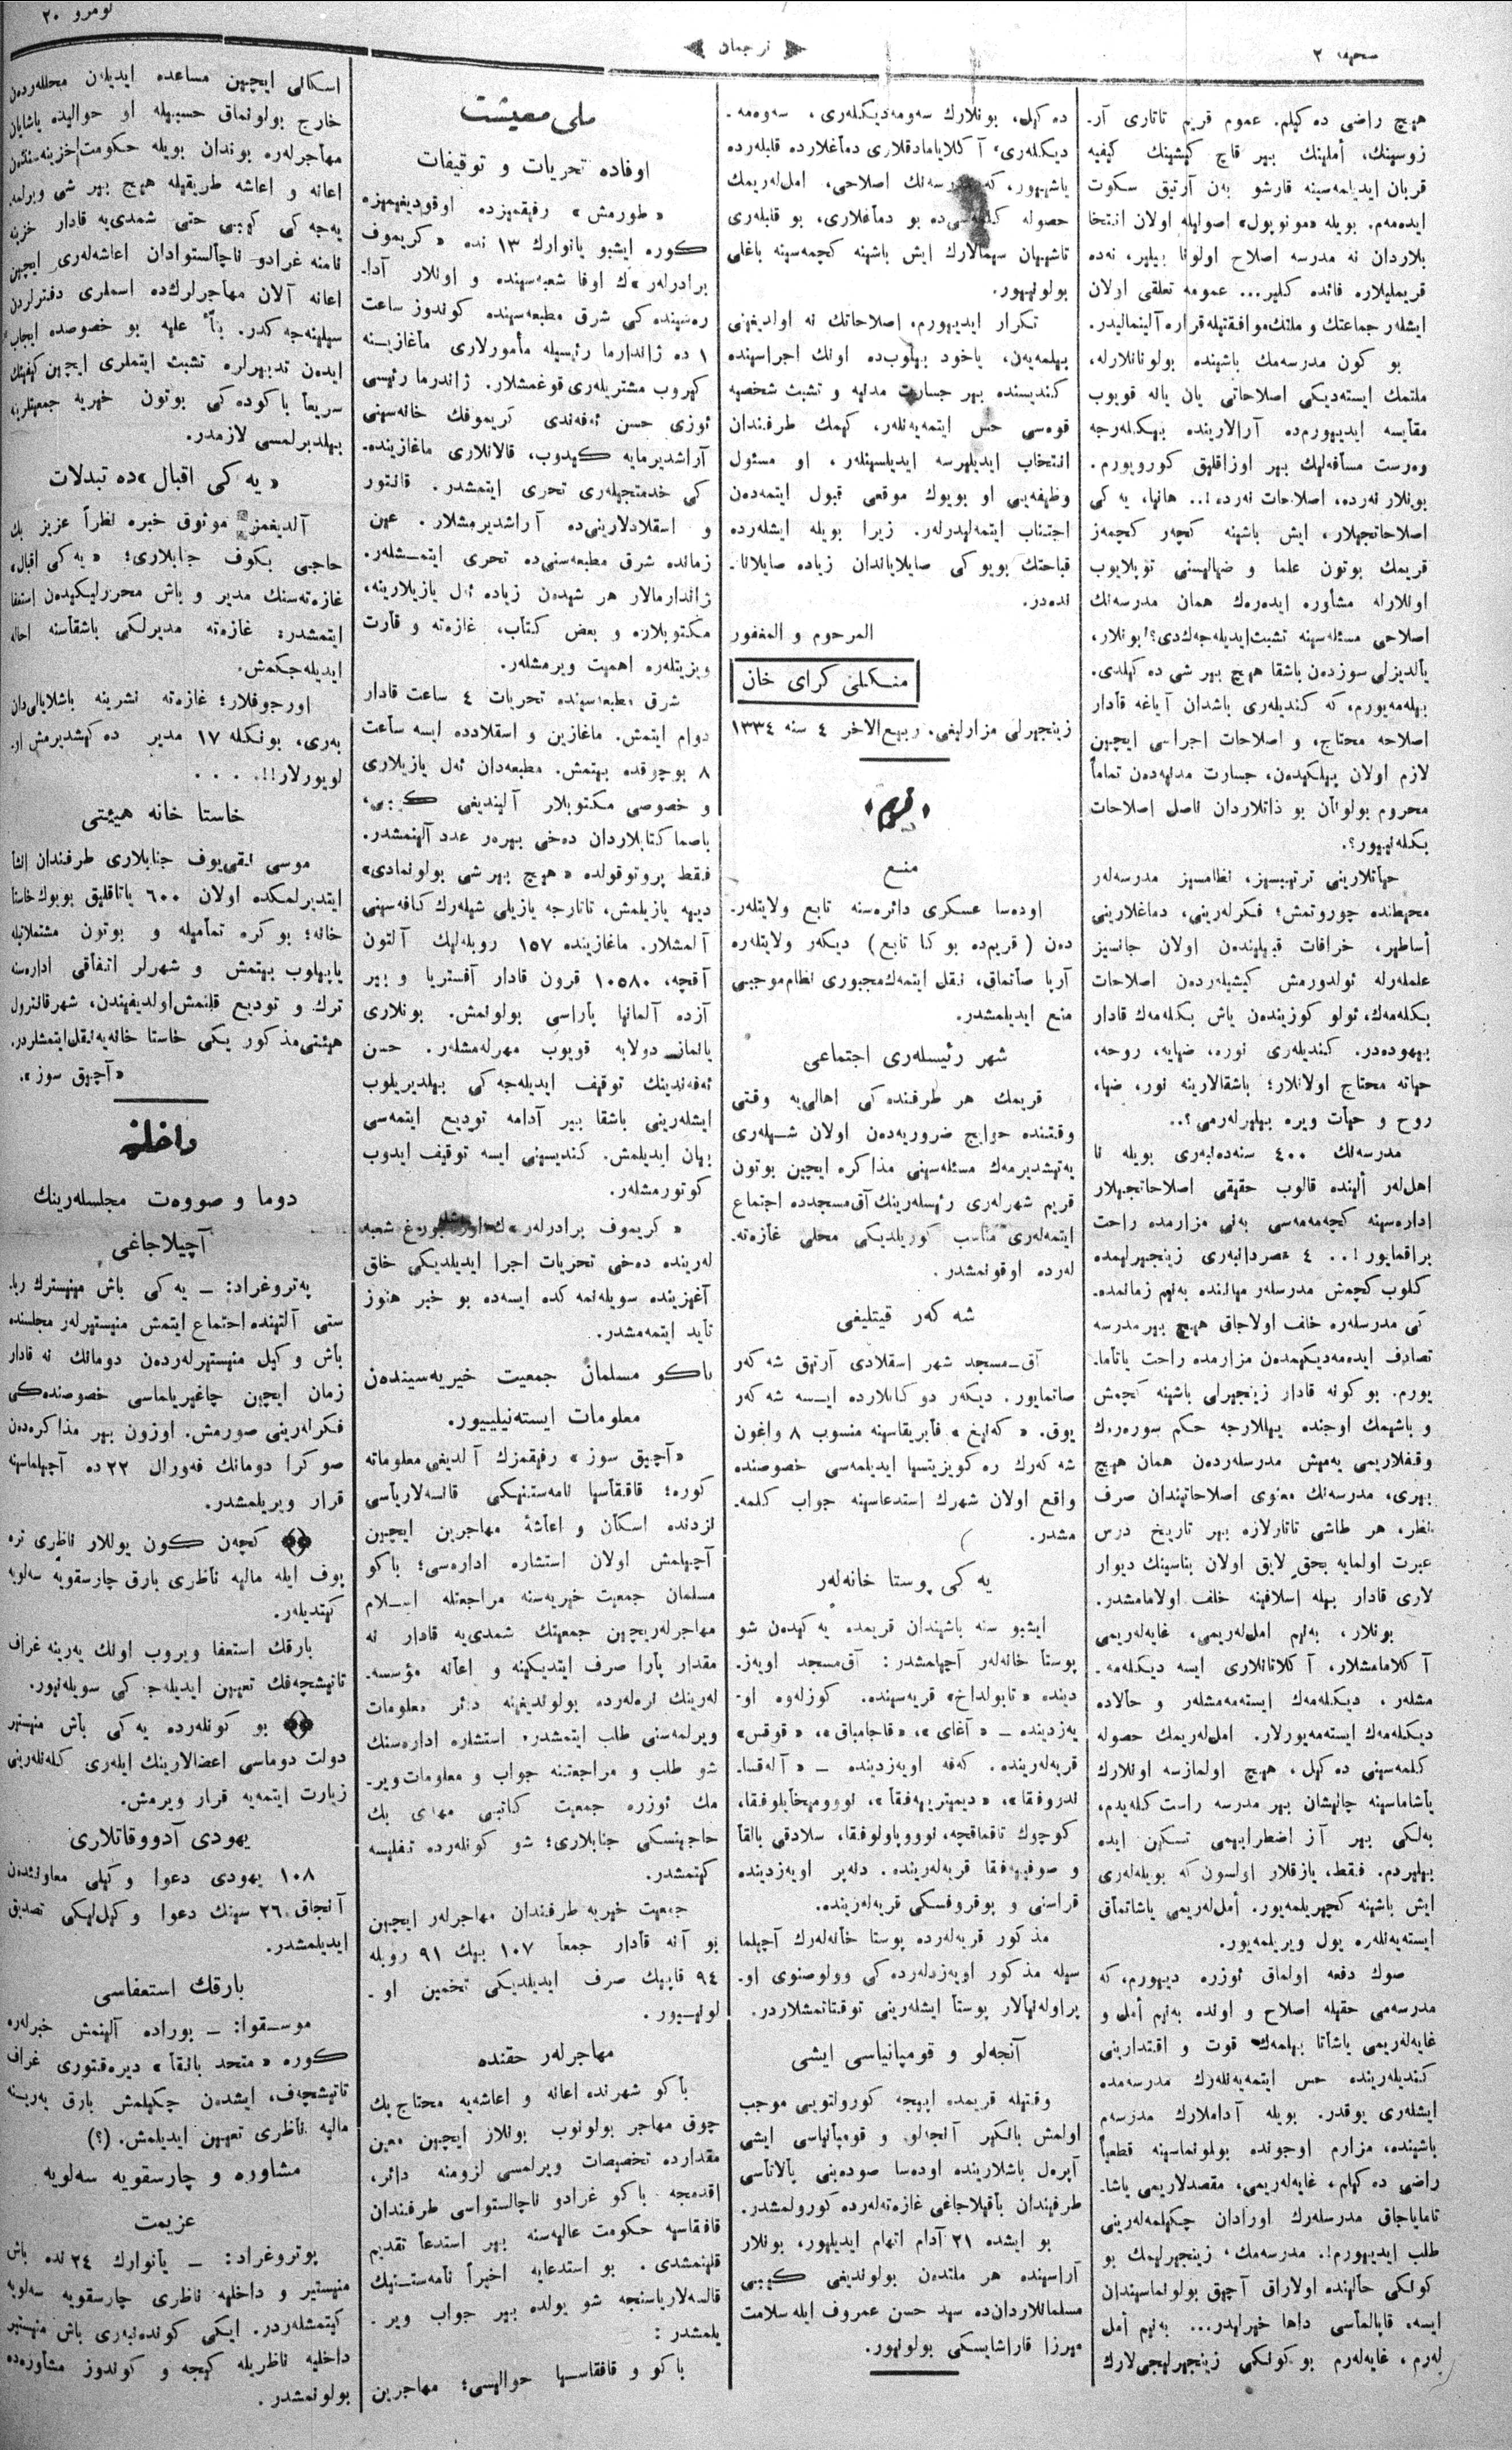 صحيفه ٢
ترجمان
نومرو ٢٠
هيچ راضی ده‌كيلم. عموم قريم تاتاری آر-
زوسينك، أملينك بير قاچ كيشينك كيفيه
قربان ايديلمه‌سينه قارشو به‌ن آرتيق سكوت
ايده‌مه‌م. بويله «مونوپول» اصوليله اولان انتخا
بلاردان نه مدرسه اصلاح اولونا بيلير، نه‌ده
قريمليلاره فائده كلير... عمومه تعلقی اولان
ايشلر جماعتك و ملتك موافقتيله قراره آلينماليدر.
بو كون مدرسه‌مك باشينده بولونانلارله،
ملتمك ايسته‌ديكی اصلاحاتی يان يانه قويوب
مقايسه ايدييورم‌ده آرالارينده بيكلرجه
وه‌رست مسافه‌ليك بير اوزاقليق كورويورم.
بونلار نه‌رده، اصلاحات نه‌رده!.. هانيا، يه‌كی
اصلاحاتجيلار، ايش باشينه كچه‌ر كچمه‌ز
قريمك بوتون علما و ضياليسنی توپلايوب
اونلارله مشاوره ايده‌رەك همان مدرسه‌نك
اصلاحی مسئله‌سينه تشبث ايديله‌جه‌ك‌دی؟! بونلار،
يالديزلی سوزدن باشقا هيچ بير شی ده‌كيلدی.
بيله‌مه‌يورم، كه كنديله‌ری باشدان آياغه قادار
اصلاحه محتاج، و اصلاحات اجراسی ايچين
لازم اولان بيلكيدن، جسارت مدنيه‌دن تماماً
محروم بولونان بو ذاتلاردان ناصل اصلاحات
بكله‌نييور؟.
حياتلارينی ترتيبسيز، نظامسيز مدرسه‌لر
محيطنده چوروتمش؛ فكرله‌رينی، دماغلارينی
أساطير، خرافات قبيلندن اولان جانسيز
علمله‌رله ئولدورمش كيشيله‌ردن اصلاحات
بكله‌مه‌ك، ئولو كوزيندن ياش بكله‌مه‌ك قادار
بيهوده‌در. كنديله‌ری نوره، ضيايه، روحه،
حياته محتاج اولانلار؛ باشقالارينه نور، ضيا،
روح و حيات ويره بيليرله‌رمی؟..
مدرسه‌نك ٤٠٠ سنه‌ده‌نبه‌ری بويله نا
اهل‌لر ألينده قالوب حقيقی اصلاحاتجيلار
اداره‌سينه كچه‌مه‌مه‌سی به‌نی مزارمده راحت
براقمايور!.. ٤ عصردانبه‌ری زينجيرليمده
كلوب كچمش مدرسلر مياننده به‌نيم زمانمده-
كی مدرسله‌ره خلف اولاجاق هيچ بير مدرسه
تصادف ايده‌مه‌ديكيمدن مزارمده راحت ياتاما-
يورم. بو كونه قادار زينجيرلی باشينه كچمش
و باشيمك اوجنده ييللارجه حكم سوره‌رەك
وقفلاريمی يه‌مش مدرسله‌ردن همان هيچ
بيری، مدرسه‌نك معنوی اصلاحاتيندان صرف
نظر، هر طاشی تاتارلاره بير تاريخ درس
عبرت اولمايه بحق لايق اولان بناسينك ديوار
لاری قادار بيله اسلافينه خلف اولامامشدر.
بونلار، به‌نيم امل‌له‌ريمی، غايه‌له‌ريمی
آكلامامشلار، آكلاتانلاری ايسه ديكله‌مه-
مشلر، ديكله‌مه‌ك ايسته‌مه‌مشلر و حالاده
ديكله‌مه‌ك ايسته‌مه‌يورلار. امل‌له‌ريمك حصوله
كلمه‌سينی ده‌كيل، هيچ اولمازسه اونلارك
ياشاماسينه چاليشان بير مدرسه راست كله‌يدم،
به‌لكی بير آز اضطرابيمی تسكين ايده
بيليردم. فقط، يازقلار اولسون كه بويله‌له‌ری
ايش باشينه كچيريلمه‌يور. أمل‌له‌ريمی ياشاتماق
ايسته‌يه‌نله‌ره يول ويريلمه‌يور.
صوك دفعه اولماق ئوزره دييورم، كه
مدرسه‌می حقيله اصلاح و اونده به‌نيم أمل و
غايه‌له‌ريمی ياشاتا بيلمه‌ك قوت و اقتدارينی
كنديله‌رينده حس ايتمه‌يه‌نله‌رك مدرسه‌مده
ايشله‌ری يوقدر. بويله آداملارك مدرسه‌م
باشينده، مزارم اوجونده بولونماسينه قطعياً
راضی ده‌كيلم، غايه‌له‌ريمی، مقصدلاريمی ياشا-
تامايا‌جاق مدرسله‌رك اورادان چكيلمه‌له‌رينی
طلب ايدييورم!. مدرسه‌مك، زينجيرليمك بو
كونكی حالينده اولاراق آچيق بولونماسيندان
ايسه، قاپالماسی داها خيرليدر... به‌نيم أمل
له‌رم، غايه‌له‌رم بو كونكی زينجيرليجی‌لارك
ده‌كيل، بونلارك سه‌ومه‌ديكله‌ری، سه‌وه‌مه-
ديكله‌ری، آكلايامادقلاری دماغلارده قلبله‌رده
ياشييور، كه مدرسه‌نك اصلاحی، امل‌له‌ريمك
حصوله كلمه‌سی‌ده بو دماغلاری، بو قلبله‌ری
تاشييان سيمالارك ايش باشينه كچمه‌سينه باغلی
بولونييور.
تكرار ايدييورم، اصلاحاتك نه اولديغينی
بيلمه‌يه‌ن، ياخود بيلوب‌ده اونك اجراسينده
كنديسنده بير جسارت مدنيه و تشبث شخصيه
قوه‌سی حس ايتمه‌يه‌نلر، كيمك طرفندان
انتخاب ايديليرسه ايديلسينلر، او مسئول
وظيفه‌يی او بويوك موقعی قبول ايتمه‌دن
اجتناب ايتمه‌ليدرلر. زيرا بويله ايشله‌رده
قباحتك بويوكی صايلاياندان زياده صايلانا-
نده‌در.
المرحوم و المغفور
منكلی كرای خان
زينجيرلی مزارليغی. ربيع‌الاخر ٤ سنه ١٣٣٤
قريم
منع
اوده‌سا عسكری دائره‌سنه تابع ولايتلر-
دن (قريم‌ده بوكا تابع) ديكه‌ر ولايتله‌ره
آرپا صاتماق، نقل ايتمه‌ك مجبوری نظام موجبی
منع ايديلمشدر.
شهر رئيسله‌ری اجتماعی
قريمك هر طرفنده‌كی اهالی‌يه وقتی
وقتنده حوايج ضروريه‌دن اولان شيله‌ری
يه‌تيشديرمه‌ك مسئله‌سينی مذاكره ايچين بوتون
قريم شهرله‌ری رئيسله‌رينك آق‌مسجدده اجتماع
ايتمه‌له‌ری مناسب كوريلديكی محلی غازه‌ته-
له‌رده اوقونمشدر.
شه‌كه‌ر قيتليغی
آق-مسجد شهر اسقلادی آرتيق شه‌كه‌ر
صاتمايور. ديكه‌ر دوكانلارده ايسه شه‌كه‌ر
يوق. «كه‌نيغ» فابريقاسينه منسوب ٨ واغون
شه‌كه‌رك ره‌كويزيتسيا ايديلمه‌سی خصوصنده
واقع اولان شهرك استدعاسينه جواب كلمه-
مشدر.
يه‌كی پوستا خانه‌لر
ايشبو سنه باشيندان قريمده يه‌كيدن شو
پوستا خانه‌لر آچيلمشدر: آق‌مسجد اويه‌ز-
دينده «تابولداخ» قريه‌سينده. كوزله‌وه او-
يه‌زدينده – «آغای»، «قاجامباق»، «قوقس»
قريه‌له‌رينده. كه‌فه اويه‌زدينده – «آله‌قسا-
ندروفقا»، «ديميتريه‌فقا»، نووميخايلوفقا،
كوچوك تاقماقچه، نوووپاولوفقا، سلادقی بالقا
و صوفييه‌فقا قريه‌له‌رينده. دنه‌پر اويه‌زدينده
قراسنی و پوقروفسكی قريه‌له‌رينده.
مذكور قريه‌له‌رده پوستا خانه‌له‌رك آچيلما
سيله مذكور اويه‌زدله‌رده‌كی وولوصنوی او-
پراوله‌نيالار پوستا ايشله‌رينی توقتاتمشلاردر.
آنجه‌لو و قومپانياسی ايشی
وقتيله قريمده اييجه كورولتويی موجب
اولمش بانكير آنجه‌لو و قومپانياسی ايشی
آپرەل باشلارينده اوده‌سا صوده‌بنی پالاتاسی
طرفيندان باقيلاجاغی غازه‌ته‌له‌رده كورولمشدر.
بو ايشده ٢١ آدام اتهام ايديليور، بونلار
آراسينده هر ملتدن بولونديغی كيبی
مسلمانلاردان‌ده سيد حسن عمروف ايله سلامت
ميرزا قاراشايسكی بولونيور.
ملی معيشت
اوفاده تحريات و توقيفات
«طورمش» رفيقمزده اوقوديغيميزه
كوره ايشبو يانوارك ١٣ نده «كريموف
برادرلر»ك اوفا شعبه‌سينده و اونلار آدا-
ره‌سينده‌كی شرق مطبعه‌سينده كوندوز ساعت
١ ده ژاندارما رئيسيله مأمورلاری ماغازينه
كيروب مشتريله‌ری قوغمشلار. ژاندرما رئيسی
ئوزی حسن ئه‌فه‌ندی كريموفك خانه‌سينی
آراشديرمايه كيدوب، قالانلاری ماغازينده-
كی خدمتجيله‌ری تحری ايتمشدر. قانتور
و اسقلادلارينی‌ده آراشديرمشلار. عين
زمانده شرق مطبعه‌سنی‌ده تحری ايتمشلر.
ژاندارمالار هر شيدن زياده ئه‌ل يازيلارينه،
مكتوبلاره و بعض كتاب، غازه‌ته و قارت
ويزيتله‌ره اهميت ويرمشلر.
شرق مطبعه‌سينده تحريات ٤ ساعت قادار
دوام ايتمش. ماغازين و اسقلادده ايسه ساعت
٨ بوچوقده بيتمش. مطبعه‌دان ئه‌ل يازيلاری
و خصوصی مكتوبلار آلينديغی كيبی،
باصما كتابلاردان ده‌خی بيره‌ر عدد آلنمشدر.
فقط پروتوقولده «هيچ بير شی بولونمادی»
دييه يازيلمش، تاتارجه يازيلی شيله‌رك كافه‌سينی
آلمشلار. ماغازينده ١٥٧ روبله‌ليك آلتون
آقچه، ١٠٥٨٠ قرون قادار آفستريا و بير
آزده آلمانيا پاراسی بولونمش. بونلاری
يانماز دولابه قويوب مهرله‌مشلر. حسن
ئه‌فه‌ندينك توقيف ايديله‌جه‌كی بيلديريلوب
ايشله‌رينی باشقا بير آدامه توديع ايتمه‌سی
بيان ايديلمش. كنديسينی ايسه توقيف ايدوب
كوتورمشلر.
«كريموف برادرلر»ك شعبه
له‌رينده ده‌خی تحريات اجرا ايديلديكی خلق
آغيزينده سويله‌نمه‌كده ايسه‌ده بو خبر هنوز
تأيد ايتمه‌مشدر.
باكو مسلمان جمعيت خيريه‌سيندەن
معلومات ايسته‌نيلييور.
«آچيق سوز» رفيقمزك آلديغی معلوماته
كوره؛ قافقاسيا نامه‌ستنيكی قانسه‌لارياسی
نزدنده اسكان و اعاشهٔ مهاجرين ايچين
آچيلمش اولان استشاره اداره‌سی؛ باكو
مسلمان جمعيت خيريه‌سنه مراجعتله اسلام
مهاجرلر ايچين جمعيتك شمدی‌يه قادار نه
مقدار پارا صرف ايتديكينه و اعانه مؤسسه-
له‌رينك نره‌له‌رده بولونديغينه دائر معلومات
ويرلمه‌سنی طلب ايتمشدر. استشاره اداره‌سنك
شو طلب و مراجعتنه جواب و معلومات وير-
مك ئوزره جمعيت كاتبی مهدی بك
حاجينسكی جنابلاری؛ شو كونله‌رده تفليسه
كيتمشدر.
جمعيت خيريه طرفندان مهاجرلر ايچين
بو آنه قادار جمعاً ١٠٧ بيك ٩١ روبله
٩٤ قاپيك صرف ايديلديكی تخمين او-
لونييور.
مهاجرلر حقنده
باكو شهرنده اعانه و اعاشه‌يه محتاج پك
چوق مهاجر بولونوب بونلار ايچين معين
مقدارده تخصيصات ويرلمسی لزومنه دائر،
اقدمجه باكو غرادو ناچالستواسی طرفندان
قافقاسيه حكومت عاليه‌سنه بير استدعا تقديم
قلينمشدی. بو استدعايه اخيراً نامه‌ستنيك
قانسه‌لارياسنجه شو يولده بير جواب وير-
يلمشدر:
باكو و قافقاسيا حواليسی؛ مهاجرين
اسكانی ايچين مساعده ايديلن محلله‌ردن
خارج بولونماق حسبيله او حواليده ياشايان
مهاجرله‌ره بوندان بويله حكومت خزينه‌سندن
اعانه و اعاشه طريقيله هيچ بير شی ويرلمه-
يه‌جه‌كی كيبی حتی شمدی‌يه قادار خزينه
نامنه غرادو ناچالستوادان اعاشه‌له‌ری ايچين
اعانه آلان مهاجرلرك‌ده اسملری دفترلردن
سيلينه‌جه‌كدر. بناءً عليه بو خصوصده ايجاب
ايدەن تدبيرلره تشبث ايتملری ايچين كيفيتك
سريعاً باكوده‌كی بوتون خيريه جمعيتلرينه
بيلديرلمسی لازمدر.
«يه‌كی اقبال»ده تبدلات
آلديغمز موثوق خبره نظراً عزيز بك
حاجی بكوف جنابلاری؛ «يه‌كی اقبال»
غازه‌ته‌سنك مدير و باش محررليكيدن استعفا
ايتمشدر: غازه‌ته مديرلكی باشقاسنه احاله
ايديله‌جكمش.
اورجوفلار؛ غازه‌ته نشرينه باشلايالی‌دان
به‌ری، بونكله ١٧ مدير ده‌كيشديرمش او-
لويورلار!!. . . .
خاستا خانه هيئتی
موسی نقی‌يوف جنابلاری طرفندان انشا
ايتديرلمكده اولان ٦٠٠ ياتاقليق بويوك خاستا
خانه؛ بو كره تماميله و بوتون مشتملاتيله
ياپيلوب بيتمش و شهرلر اتفاقی اداره‌سنه
ترك و توديع قلنمش اولديغيندن، شهر قانترول
هيئتی مذكور يكی خاستا خانه‌يه نقل ايتمشلردر.
«آچيق سوز».
داخليه
دوما و صووەت مجلسله‌رينك
آچيلاجاغی
پەتروغراد: – يه‌كی باش مينيسترك ريا-
ستی آلتينده اجتماع ايتمش منيستيرلر مجلسنده
باش وكيل منيستيرله‌ردن دومانك نه قادار
زمان ايچين چاغيريلماسی خصوصنده‌كی
فكرله‌رينی صورمش. اوزون بير مذاكره‌دن
صوكرا دومانك فەورال ٢٢ ده آچيلماسينه
قرار ويريلمشدر.
كچەن كون يوللار ناظری تره
پوف ايله ماليه ناظری بارق چارسقويه سەلويه
كيتديلر.
بارقك استعفا ويروب اونك يه‌رينه غراف
تاتيشچه‌فك تعيين ايديله‌جه‌كی سويله‌نيور.
بو كونله‌رده يه‌كی باش منيستير
دولت دوماسی اعضالارينك ايله‌ری كله‌نله‌رينی
زيارت ايتمه‌يه قرار ويرمش.
يهودی آدووقاتلاری
١٠٨ يهودی دعوا وكيلی معاونندن
آنجاق ٢٦ سينك دعوا وكيل‌ليكی تصديق
ايديلمشدر.
بارقك استعفاسی
موسقوا: – بوراده آلينمش خبرله‌ره
كوره «متحد بانقا» ديره‌قتوری غراف
تاتيشچه‌ف، ايشدن چكيلمش بارق يه‌رينه
ماليه ناظری تعيين ايديلمش. (؟)
مشاوره و چارسقويه سەلويه
عزيمت
پوتروغراد: – يانوارك ٢٤ نده باش
منيستير و داخليه ناظری چارسقويه سەلويه
كيتمشلردر. ايكی كونده‌نبه‌ری باش منيستير
داخليه ناظريله كيجه و كوندوز مشاوره‌ده
بولونمشدر.